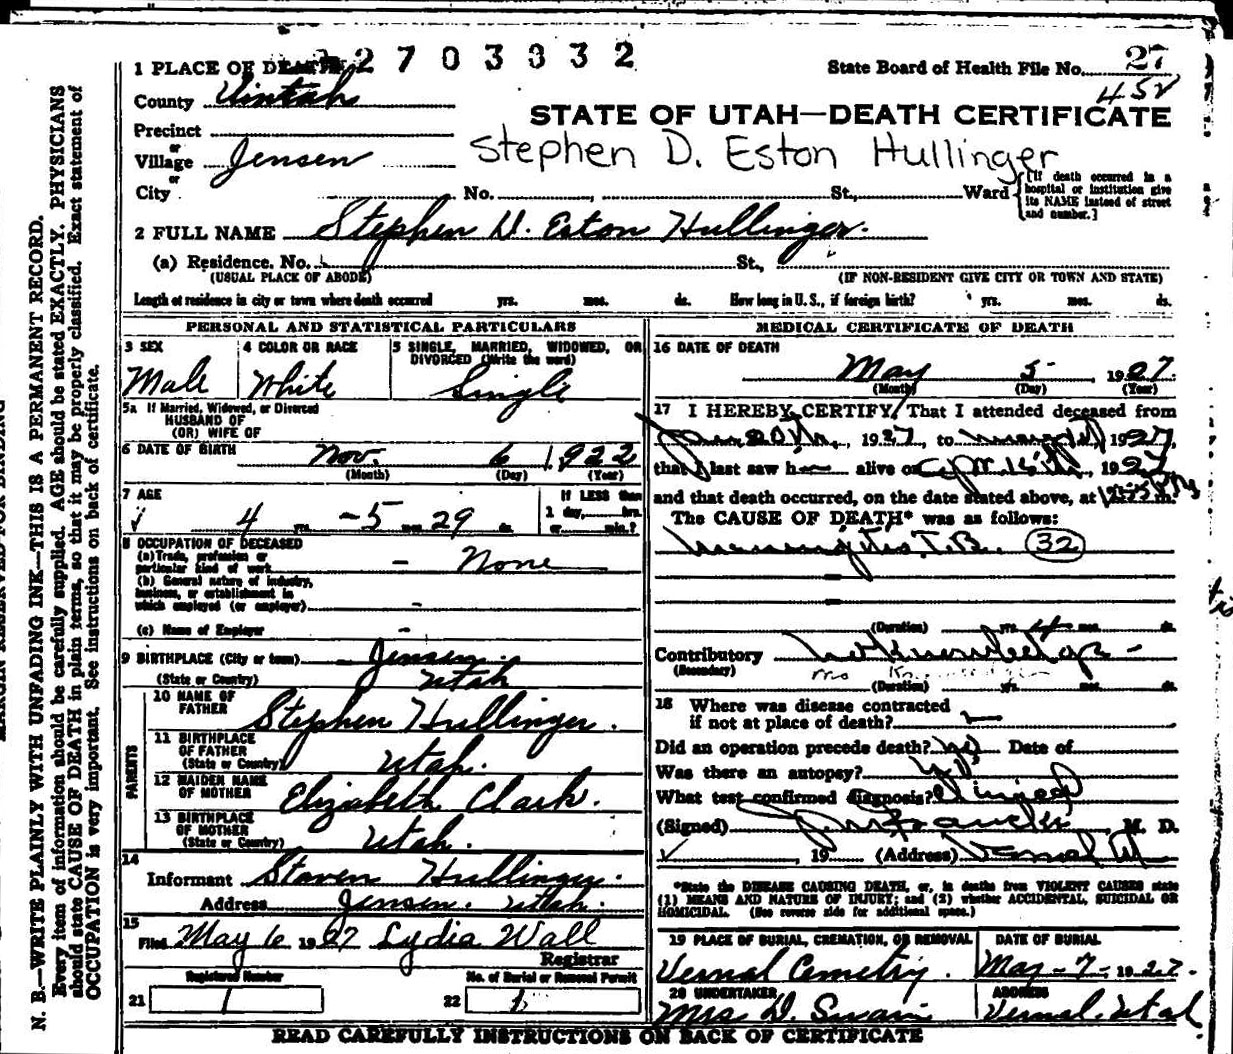 2703032
State Board of Health File No. 27
452
1 PLACE OF DEATH
County Uintah
STATE OF UTAH—DEATH CERTIFICATE
Precinct
or
Village Jensen
Stephen D. Eston Hullinger
or
City No. St., Ward
[If death occurred in a hospital or institution give its NAME instead of street and number.]
2 FULL NAME Stephen D. Eston Hullinger.
(a) Residence. No. St.,
(USUAL PLACE OF ABODE) (IF NON-RESIDENT GIVE CITY OR TOWN AND STATE)
Length of residence in city or town where death occurred yrs. mos. ds. How long in U. S., if foreign birth? yrs. mos. ds.
PERSONAL AND STATISTICAL PARTICULARS
3 SEX
Male
4 COLOR OR RACE
White
5 SINGLE, MARRIED, WIDOWED, OR
DIVORCED (Write the word)
Single
5a If Married, Widowed, or Divorced
HUSBAND OF
(OR) WIFE OF
6 DATE OF BIRTH Nov. 6 1922
(Month) (Day) (Year)
7 AGE
4 yrs. -5 mos. 29 ds.
If LESS than
1 day, hrs.
or min.?
8 OCCUPATION OF DECEASED
(a) Trade, profession or
particular kind of work - None
(b) General nature of industry,
business, or establishment in
which employed (or employer) -
(c) Name of Employer -
9 BIRTHPLACE (City or town) Jensen.
(State or Country) Utah
PARENTS
10 NAME OF
FATHER Stephen Hullinger.
11 BIRTHPLACE
OF FATHER
(State or Country) Utah.
12 MAIDEN NAME
OF MOTHER Elizabeth Clark.
13 BIRTHPLACE
OF MOTHER
(State or Country) Utah.
14
Informant Staven Hullinger.
Address Jensen. Utah.
15
Filed May 6 1927 Lydia Wall
Registrar
Registered Number No. of Burial or Removal Permit
21 1 22 1
MEDICAL CERTIFICATE OF DEATH
16 DATE OF DEATH
May 5 1927.
(Month) (Day) (Year)
17 I HEREBY CERTIFY, That I attended deceased from
, 1927, to , 1927,
that I last saw h alive on , 1927
and that death occurred, on the date stated above, at m.
The CAUSE OF DEATH* was as follows:
Meningitis T.B. 32
(Duration) yrs. 4 mos. ds.
Contributory
(Secondary)
(Duration) yrs. mos. ds.
18 Where was disease contracted
if not at place of death?
Did an operation precede death? No Date of
Was there an autopsy? No
What test confirmed diagnosis? Clinical
(Signed) M. D.
, 19 (Address) Vernal Ut
*State the DISEASE CAUSING DEATH, or, in deaths from VIOLENT CAUSES state
(1) MEANS AND NATURE OF INJURY; and (2) whether ACCIDENTAL, SUICIDAL OR
HOMICIDAL. (See reverse side for additional space.)
19 PLACE OF BURIAL, CREMATION, OR REMOVAL
Vernal Cemetry.
DATE OF BURIAL
May-7-1927.
20 UNDERTAKER
Mrs D. Swain
ADDRESS
Vernal. Utah
READ CAREFULLY INSTRUCTIONS ON BACK OF CERTIFICATE
N. B.—WRITE PLAINLY WITH UNFADING INK—THIS IS A PERMANENT RECORD.
Every item of information should be carefully supplied. AGE should be stated EXACTLY. PHYSICIANS
should state CAUSE OF DEATH in plain terms, so that it may be properly classified. Exact statement of
OCCUPATION is very important. See instructions on back of certificate.
MARGIN RESERVED FOR BINDING